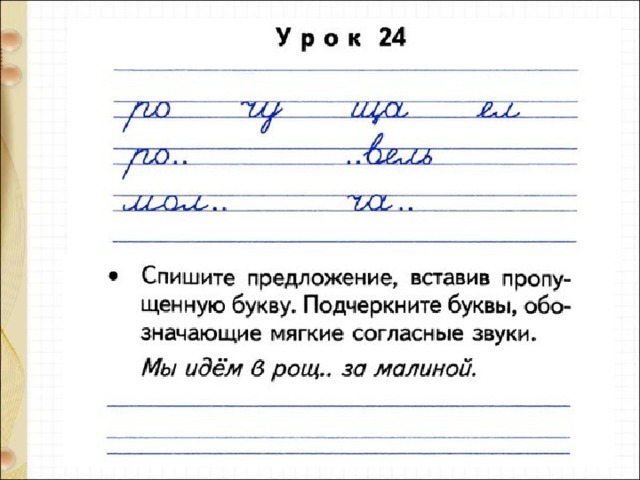 Урок 24
ро чу ща ел
ро.. ..вель
мол.. ча..
• Спишите предложение, вставив пропу-
щенную букву. Подчеркните буквы, обо-
значающие мягкие согласные звуки.
Мы идём в рощ.. за малиной.